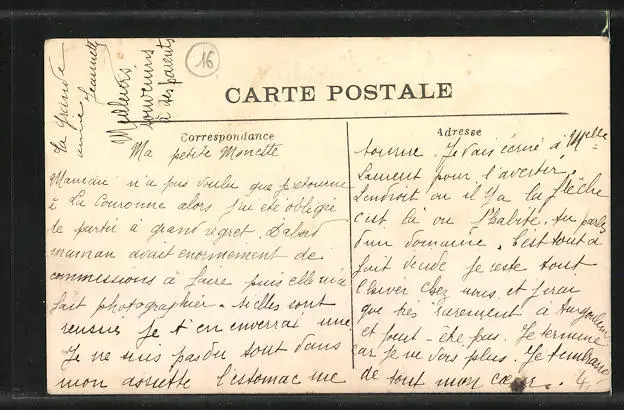 16
Meilleurs
souvenirs
à tes parents
La grande
amie Jeannette
CARTE POSTALE
Correspondance
Adresse
Ma petite Monette
Maman n'a pas voulu que je retourne
à La Couronne alors j'ai été obligée
de partir à grand regret. D'abord
maman avait enormement de
commissions à faire puis elle m'a
fait photographier. si elles sont
reussies je t'en enverrai une
Je ne suis pas du tout dans
mon assiette l'estomac me
tourne. Je vais écrire à Melle
Laurent pour l'avertir.
L'endroit ou il y a la flêche
c'est là ou j'habite. tu parles
d'un domaine. C'est tout à
fait vende je reste tout
l'hiver chez nous et j'irai
que très rarement à Angoulême
et peut-être pas. Je termine
car je ne vois plus. Je t'embrasse
de tout mon cœur.